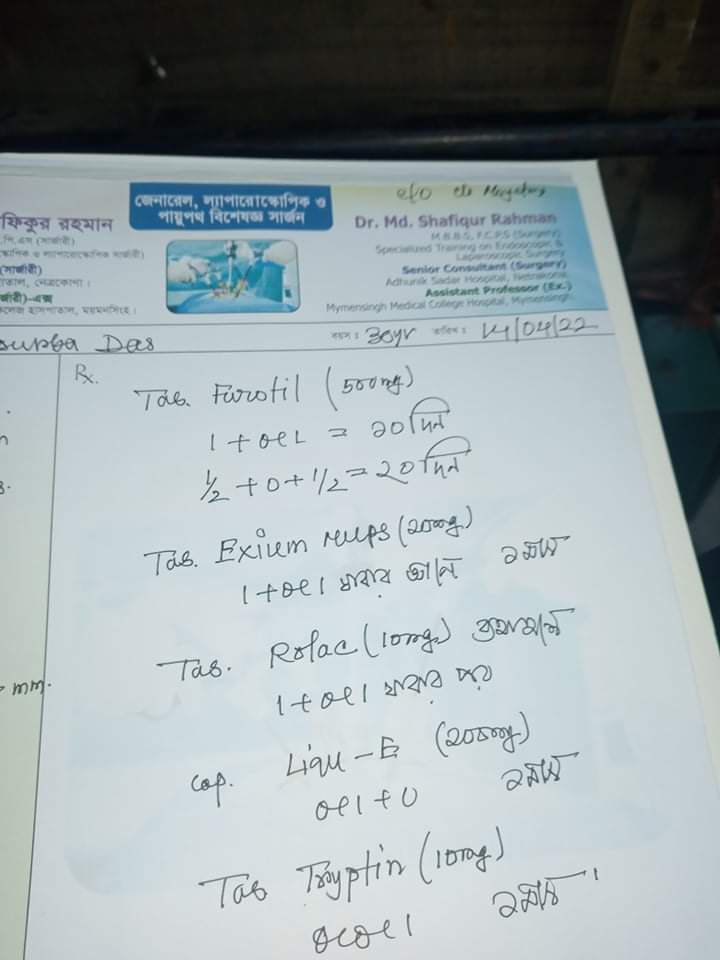 জেনারেল, ল্যাপারোস্কোপিক ও
পায়ুপথ বিশেষজ্ঞ সার্জন
ফিকুর রহমান
পি.এস (সার্জারী)
(সার্জারী)
তাল, নেত্রকোণা।
র্জারী)-এক্স
কলেজ হাসপাতাল, ময়মনসিংহ।
c/o
Dr. Md. Shafiqur Rahman
M.B.B.S, F.C.P.S (Surgery)
Specialized Training on Endoscopic &
Laparoscopic Surgery
Senior Consultant (Surgery)
Adhunik Sadar Hospital, Netrakona
Assistant Professor (Ex.)
Mymensingh Medical College Hospital, Mymensingh
Das বয়স: 30yr তারিখ: 14/04/22
Rx.
Tab. Furotil (500mg)
1+0+1 = ১০ দিন
1/2+0+1/2 = ২০ দিন
Tab. Exium mups (20mg)
1+0+1 খাবার আগে ২ মাস
Tab. Rolac (10mg)
1+0+1 খাবার পর
mm.
Cap. Liqu-E (200mg)
0+1+0 ২ মাস
Tab Tryptin (10mg)
0+0+1 ২ মাস